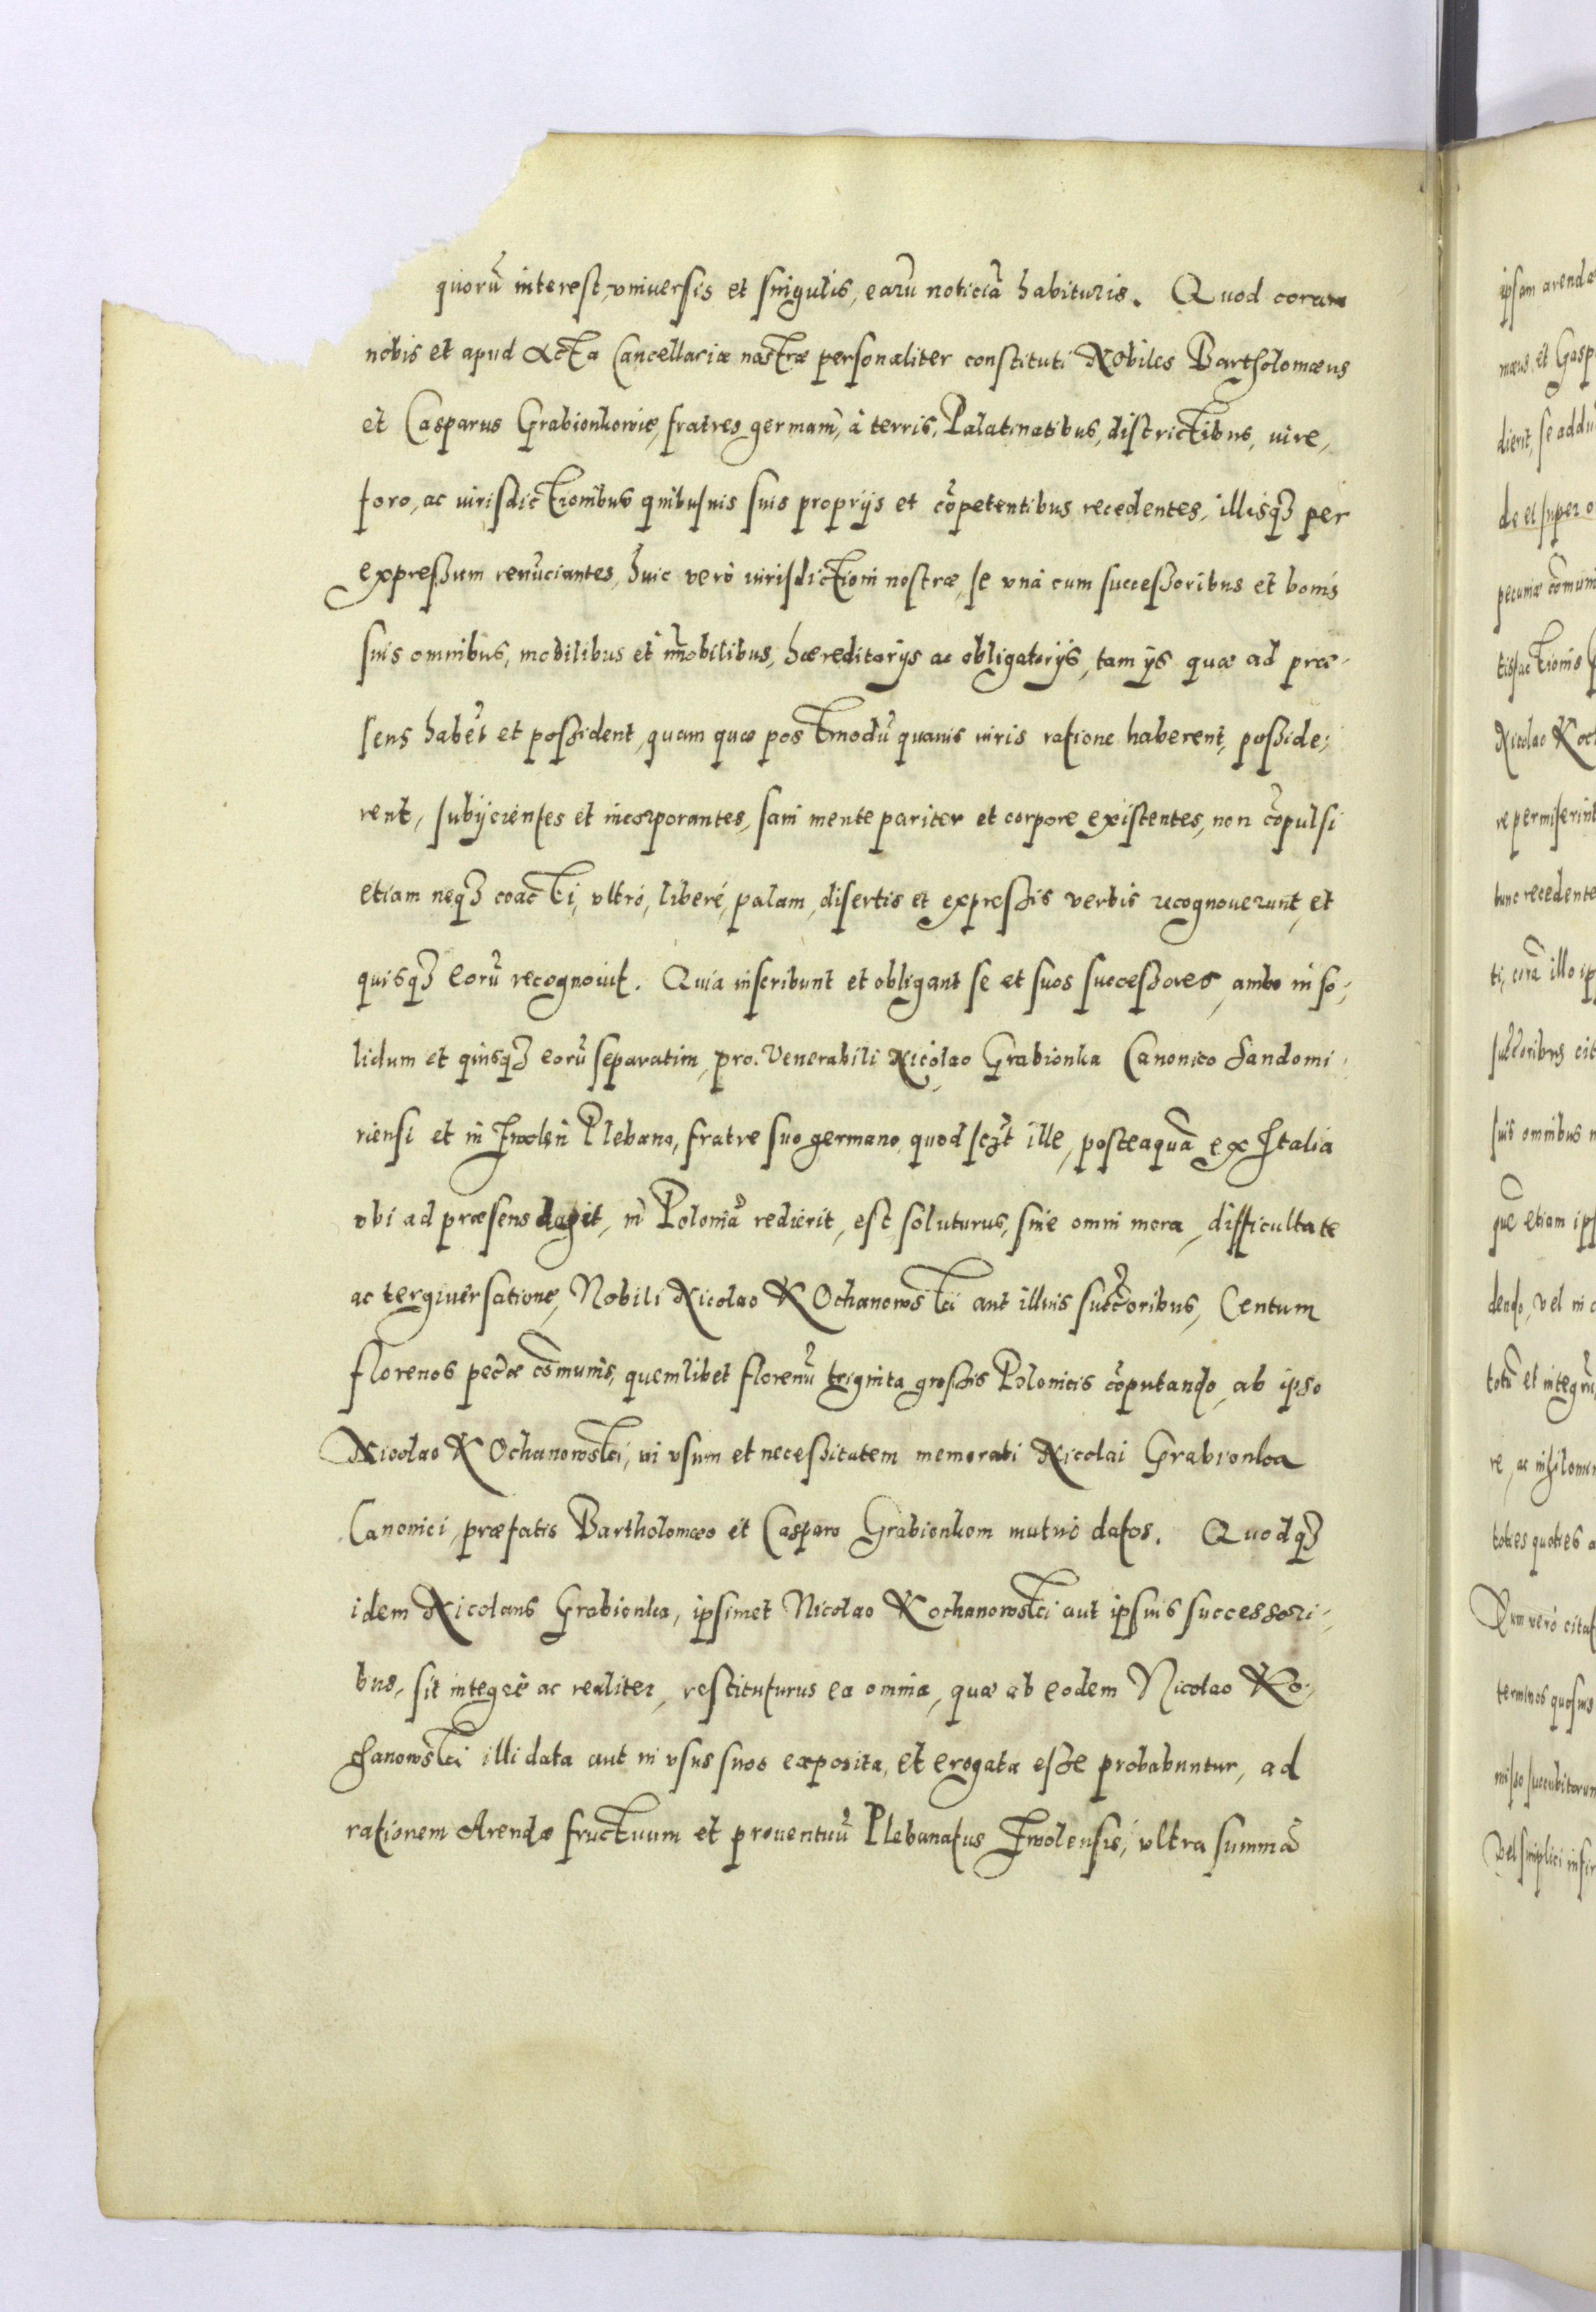 quorũ interest, vniuersis et singulis, earũ noticiã habituris. Quod coram
nobis et apud Acta Cancellariæ nostræ personaliter constituti Nobiles Bartholomæus
et Casparus Grabionkowie, fratres germani, à terris, Palatinatibus, districtibus, iure,
foro, ac iurisdictionibus quibusuis suis proprijs et cõpetentibus recedentes, illisq3 per
expressum renũciantes, huic verò iurisdictioni nostræ, se vnà cum successoribus et bonis
suis omnibus, mobilibus et im̃obilibus, hæreditarijs ac obligatorijs, tam ijs quæ ad præ-
sens habẽt et possident, quam quæ postmodũ quauis iuris ratione haberent, posside-
rent, subijcientes et incorporantes, sani mente pariter et corpore existentes, non cõpulsi
etiam neq3 coacti, vltrò, liberè, palam, disertis et expressis verbis recognouerunt, et
quisq3 eorũ recognouit. Quia inscribunt et obligant se et suos successores, ambo in so-
lidum et quisq3 eorũ separatim, pro Venerabili Nicolao Grabionka Canonico Sandomi-
riensi et in Zwolen Plebano, fratre suo germano, quod sc3t ille, posteaquã ex Italia
vbi ad præsens dagit, in Poloniã redierit, est soluturus, sine omni mora, difficultate
ac tergiuersatione, Nobili Nicolao KOchanowski aut illius succ̃oribus, Centum
florenos pec̃æ cõmunis, quemlibet florenũ triginta grossis Polonicis cõputando, ab ipso
Nicolao KOchanowski, in vsum et necessitatem memorati Nicolai Grabionka
Canonici, præfatis Bartholomæo et Casparo Grabionkom mutuò datos. Quodq3
idem Nicolaus Grabionka, ipsimet Nicolao Kochanowski aut ipsius successori-
bus, sit integrè ac realiter, restituturus ea omnia, quæ ab eodem Nicolao Ko-
chanowski illi data aut in vsus suos exposita, et erogata esse probabuntur, ad
rationem Arendæ fructuum et prouentuũ Plebanatus Zwolensis, vltra summã